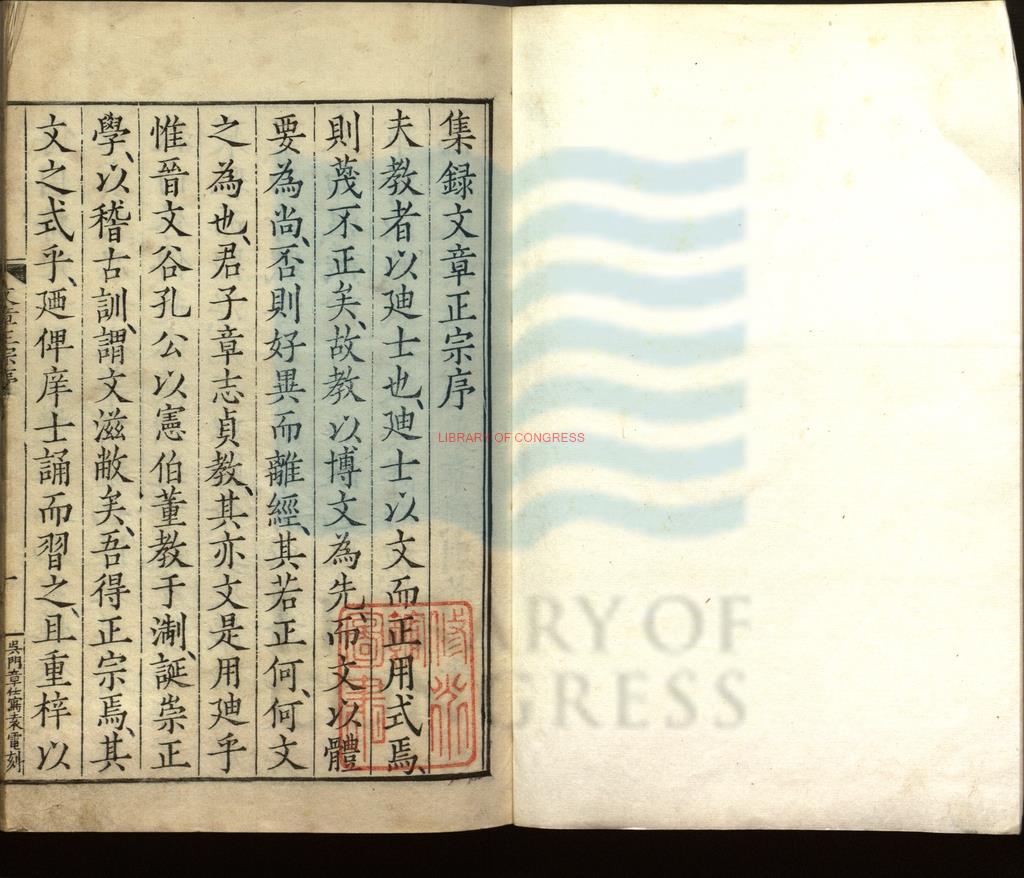 集録文章正宗序
夫教者以迪士也、迪士以文而正用式焉、
則蔑不正矣、故教以博文為先、而文以體
要為尚、否則好異而離經、其若正何、何文
之為也、君子章志貞教、其亦文是用迪乎
惟晉文谷孔公以憲伯董教于淛、誕崇正
學、以稽古訓、謂文滋敝矣、吾得正宗焉、其
文之式乎、廼俾庠士誦而習之、且重梓以
文章正宗序
一
吳門章仕寫袁電刻
LIBRARY OF CONGRESS
LIBRARY OF
CONGRESS
圖書